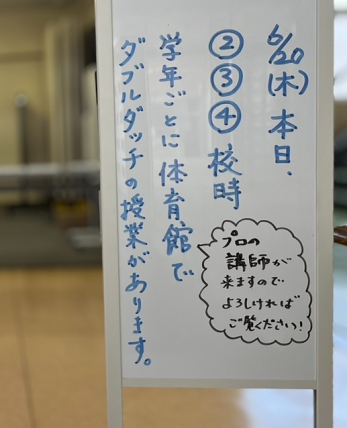 6/20(木)本日、
②③④校時
学年ごとに体育館で
ダブルダッチの授業があります。
プロの
講師が
来ますので
よろしければ
ご覧ください!